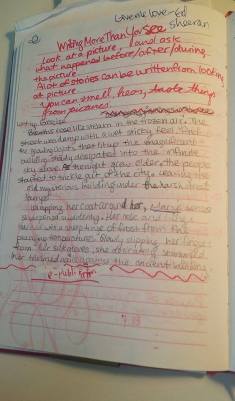 Give me love - Ed
Sheeran
Writing More Than You See
Look at a picture, and ask
what happened before/after/during
the picture
A lot of stories can be written from looking
at picture
you can smell, hear, taste things
from pictures.
Writing Example
Breaths rose like steam in the frozen air. The
street was damp with a wet sticky feel. And
the lights, that lit up the magnificent
building, slowly dissipated into the infinite
sky above. As the night grew older, the people
started to trickle out of the city, leaving the
old mysterious building under the harsh street
lamps.
Wrapping her coat around her,
Her nose
with a sharp tinge of frost from the
temperature. Slowly slipping her fingers
from her silk gloves, she
her hand against the ancient building